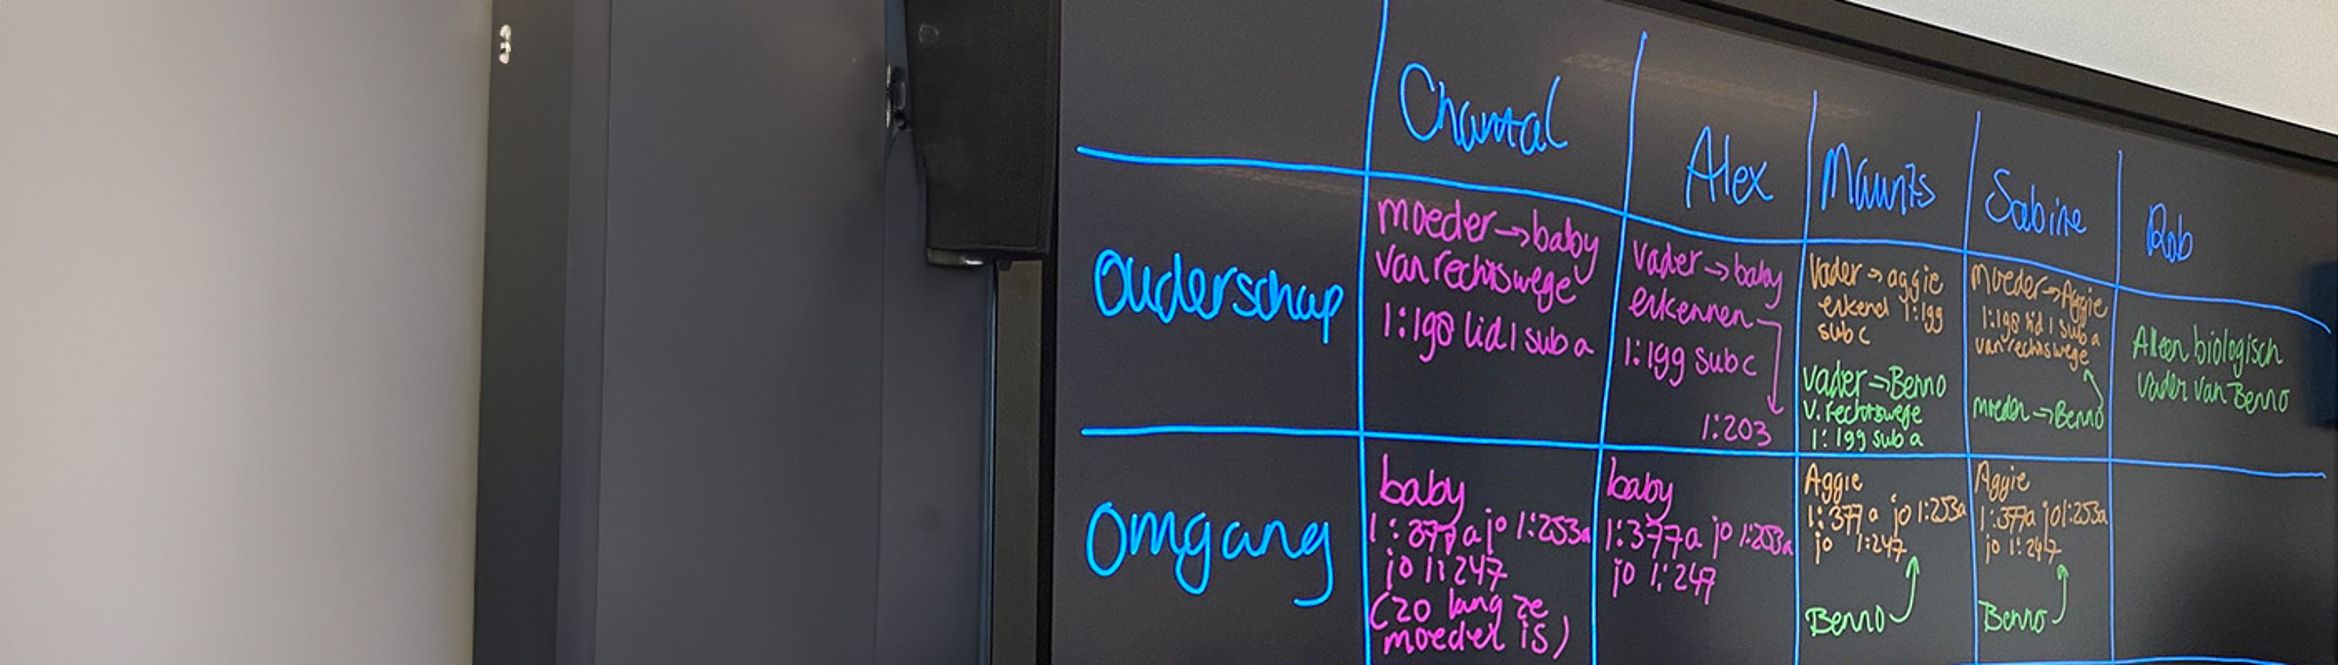 Chantal
Alex
Maurits
Sabine
Rob
Ouderschap
moeder → baby
van rechtswege
1:198 lid 1 sub a
vader → baby
erkennen
1:199 sub c
1:203
Vader → aggie
erkend 1:199
sub c
vader → Benno
v. rechtswege
1:199 sub a
Moeder → Aggie
1:198 lid 1 sub a
van rechtswege
moeder → Benno
Alleen biologisch
vader van Benno
Omgang
baby
1:377a jo 1:253a
jo 1:247
(zo lang ze
moeder is)
baby
1:377a jo 1:253a
jo 1:247
Aggie
1:377a jo 1:253a
jo 1:247
Benno
Aggie
1:377a jo 1:253a
jo 1:247
Benno